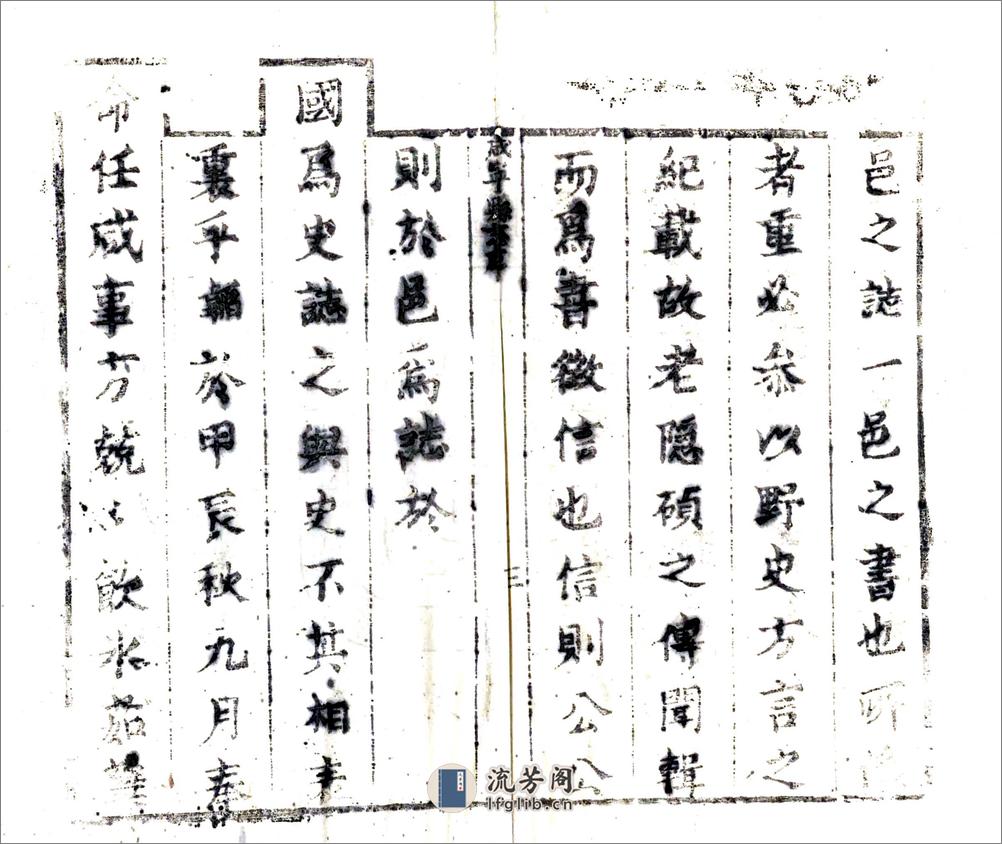 邑之誌一邑之書也所
者重必叅以野史方言之
紀載故老隠碩之傳聞輯
而爲書徵信也信則公公
咸寧縣
三
則於邑爲誌於
國爲史誌之與史不其相
裏乎頫於甲辰秋九月奉
命任咸事方兢兢飲氷茹
流芳阁
lfglib.cn